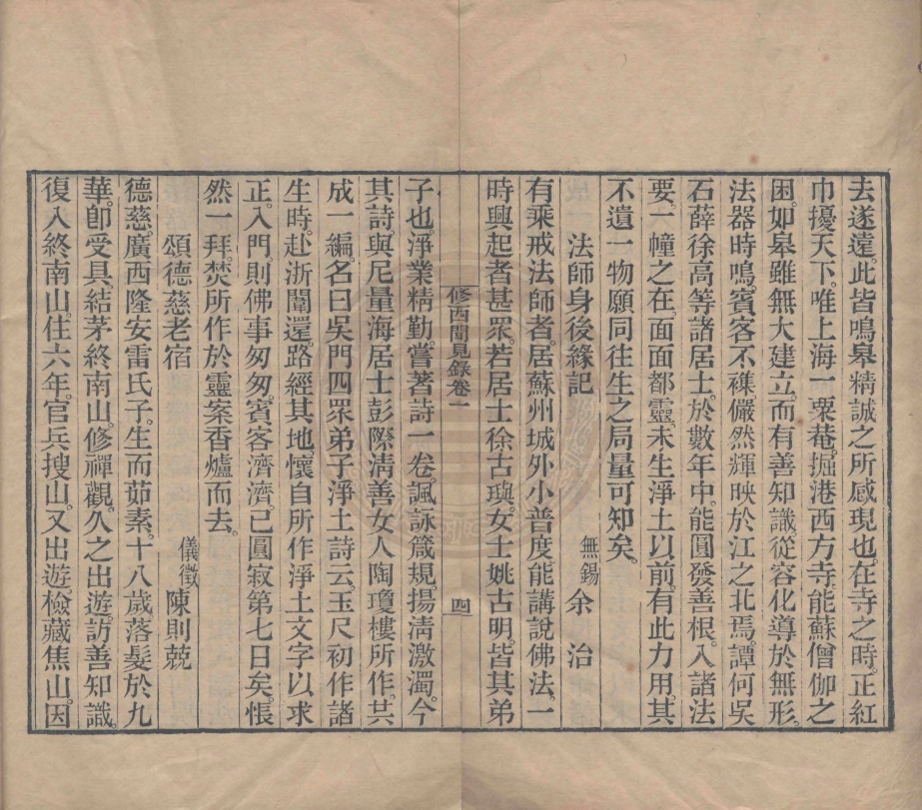 去遂遠。此皆鳴皋精誠之所感現也。在寺之時。正紅
巾擾天下。唯上海一粟菴。掘港西方寺能蘇僧伽之
困。如皋雖無大建立。而有善知識從容化導於無形。
法器時鳴。賓客不襍。儼然輝映於江之北焉。譚何吳
石薛徐高等諸居士。於數年中。能圓發善根。入諸法
要。一幢之在。面面都靈。未生淨土以前。有此力用。其
不遺一物願同往生之局量可知矣。
法師身後緣記 無錫 余 治
有乘戒法師者。居蘇州城外小普度。能講說佛法。一
時興起者甚眾。若居士徐古瑛。女士姚古明。皆其弟
修西聞見錄卷一 四
子也。淨業精勤。嘗著詩一卷。諷詠箴規。揚清激濁。今
其詩。與尼量海居士彭際清善女人陶瓊樓所作。共
成一編。名曰吳門四眾弟子淨土詩云。玉尺初作諸
生時。赴浙闈還。路經其地。懷自所作淨土文字以求
正。入門。則佛事匆匆。賓客濟濟。已圓寂第七日矣。悵
然一拜。焚所作於靈案香爐而去。
頌德慈老宿 儀徵 陳則兢
德慈。廣西隆安雷氏子。生而茹素。十八歲落髮於九
華。卽受具。結茅終南山。修禪觀。久之出遊。訪善知識。
復入終南山。住六年。官兵搜山。又出遊。檢藏焦山。因